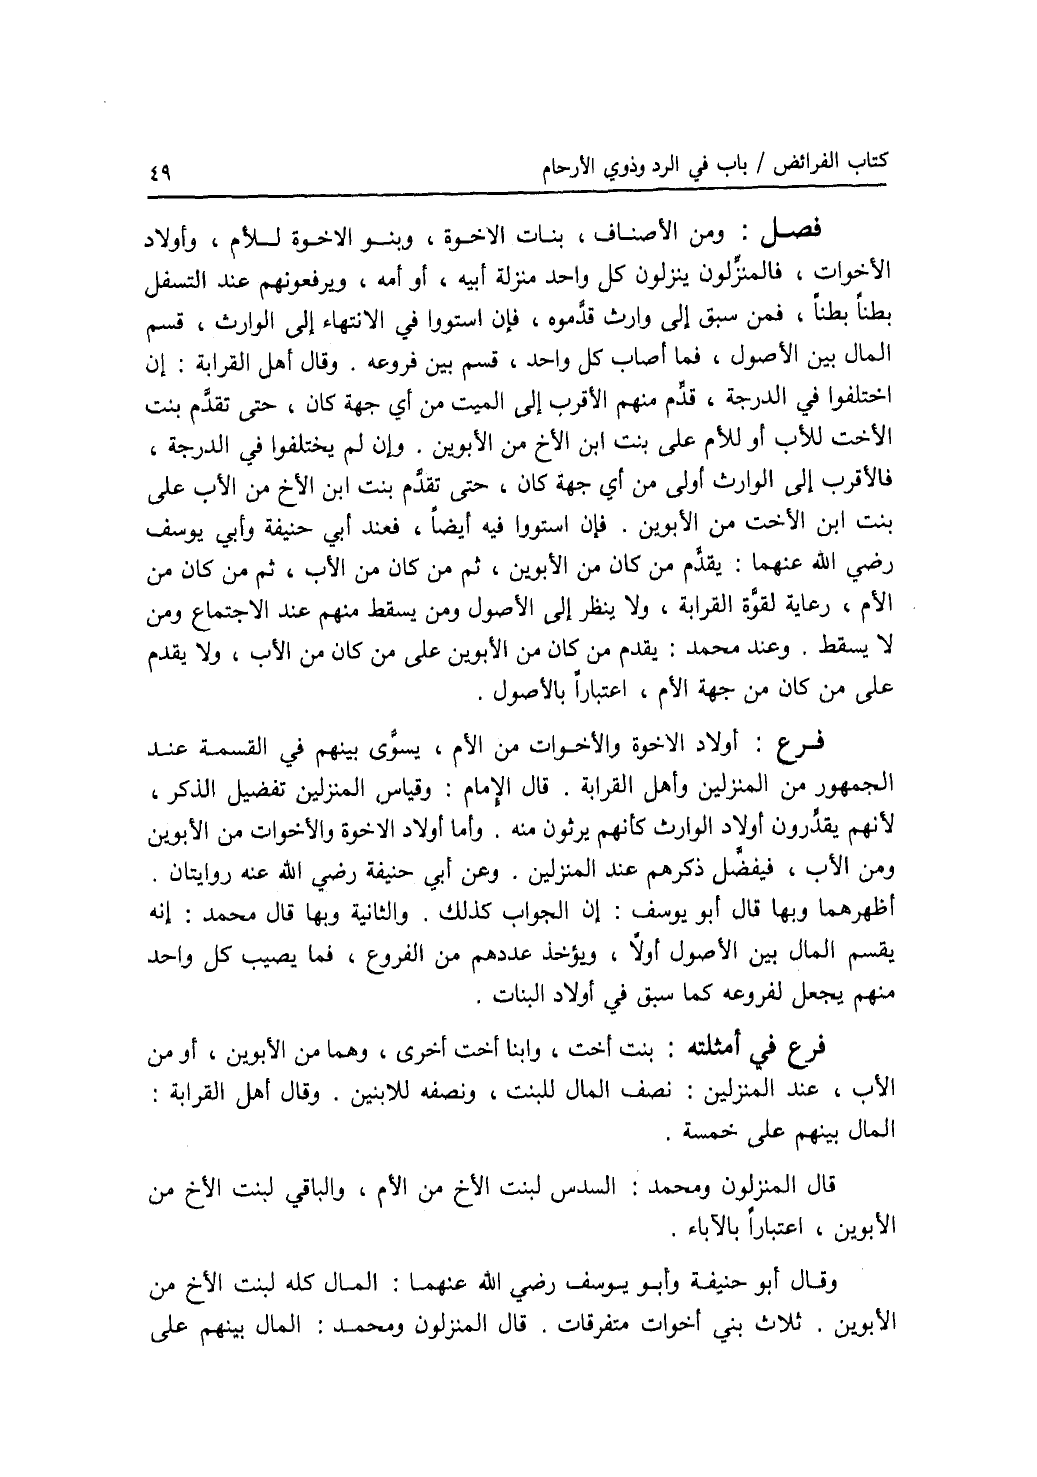 كتاب الفرائض / باب في الرد وذوي الأرحام
٤٩
فصل : ومن الأصناف ، بنات الاخوة ، وبنو الاخوة للأم ، وأولاد
الأخوات ، فالمنزِّلون ينزلون كل واحد منزلة أبيه ، أو أمه ، ويرفعونهم عند التسفل
بطناً بطناً ، فمن سبق إلى وارث قدَّموه ، فإن استووا في الانتهاء إلى الوارث ، قسم
المال بين الأصول ، فما أصاب كل واحد ، قسم بين فروعه . وقال أهل القرابة : إن
اختلفوا في الدرجة ، قدِّم منهم الأقرب إلى الميت من أي جهة كان ، حتى تقدَّم بنت
الأخت للأب أو للأم على بنت ابن الأخ من الأبوين . وإن لم يختلفوا في الدرجة ،
فالأقرب إلى الوارث أولى من أي جهة كان ، حتى تقدَّم بنت ابن الأخ من الأب على
بنت ابن الأخت من الأبوين . فإن استووا فيه أيضاً ، فعند أبي حنيفة وأبي يوسف
رضي الله عنهما : يقدَّم من كان من الأبوين ، ثم من كان من الأب ، ثم من كان من
الأم ، رعاية لقوَّة القرابة ، ولا ينظر إلى الأصول ومن يسقط منهم عند الاجتماع ومن
لا يسقط . وعند محمد : يقدم من كان من الأبوين على من كان من الأب ، ولا يقدم
على من كان من جهة الأم ، اعتباراً بالأصول .
فرع : أولاد الاخوة والأخوات من الأم ، يسوَّى بينهم في القسمة عند
الجمهور من المنزلين وأهل القرابة . قال الإمام : وقياس المنزلين تفضيل الذكر ،
لأنهم يقدَّرون أولاد الوارث كأنهم يرثون منه . وأما أولاد الاخوة والأخوات من الأبوين
ومن الأب ، فيفضَّل ذكرهم عند المنزلين . وعن أبي حنيفة رضي الله عنه روايتان .
أظهرهما وبها قال أبو يوسف : إن الجواب كذلك . والثانية وبها قال محمد : إنه
يقسم المال بين الأصول أولاً ، ويؤخذ عددهم من الفروع ، فما يصيب كل واحد
منهم يجعل لفروعه كما سبق في أولاد البنات .
فرع في أمثلته : بنت أخت ، وابنا أخت أخرى ، وهما من الأبوين ، أو من
الأب ، عند المنزلين : نصف المال للبنت ، ونصفه للابنين . وقال أهل القرابة :
المال بينهم على خمسة .
قال المنزلون ومحمد : السدس لبنت الأخ من الأم ، والباقي لبنت الأخ من
الأبوين ، اعتباراً بالآباء .
وقال أبو حنيفة وأبو يوسف رضي الله عنهما : المال كله لبنت الأخ من
الأبوين . ثلاث بني أخوات متفرقات . قال المنزلون ومحمد : المال بينهم على